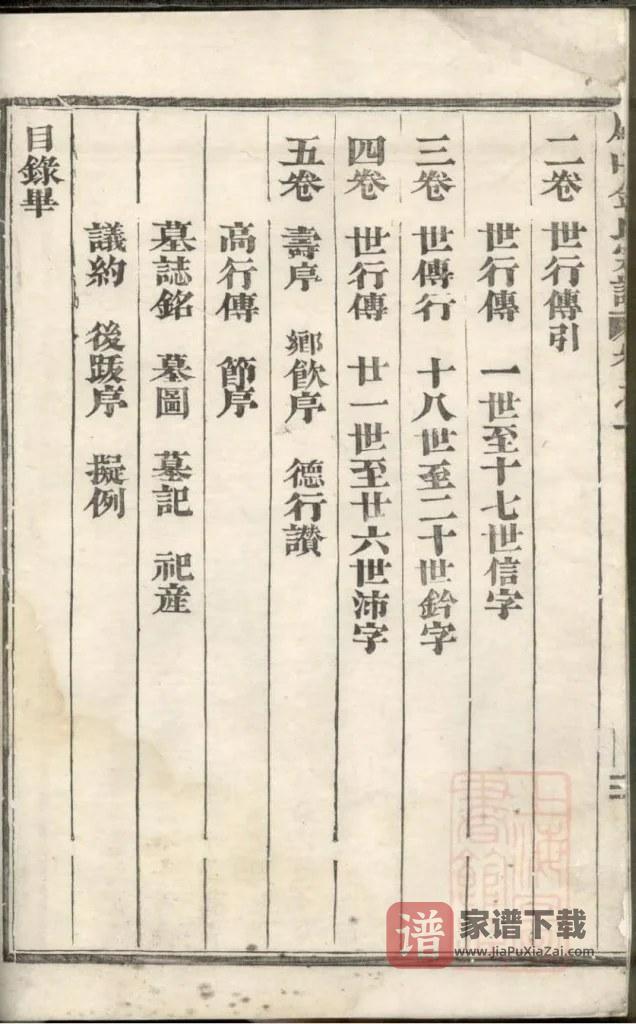 二卷 世行傳引
世行傳 一世至十七世信字
三卷 世傳行 十八世至二十世鈴字
四卷 世行傳 廿一世至廿六世沛字
五卷 壽序 鄉飲序 德行讚
高行傳 節序
墓誌銘 墓圖 墓記 祀產
議約 後跋序 擬例
目錄畢
三
上海
書館
谱 家谱下载
www.JiaPuXiaZai.com